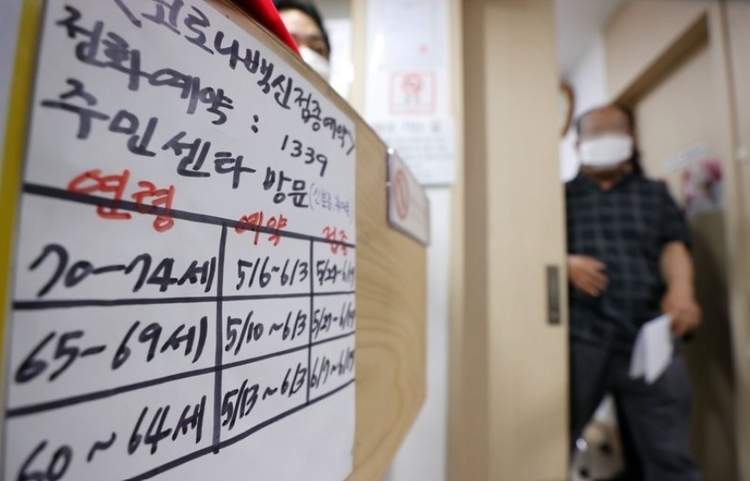 <코로나백신접종예약>
전화예약 : 1339
주민센타 방문
연령 예약 접종
70-74세 5/6~6/3
65-69세 5/10~6/3
60~64세 5/13~6/3 6/7~6/19